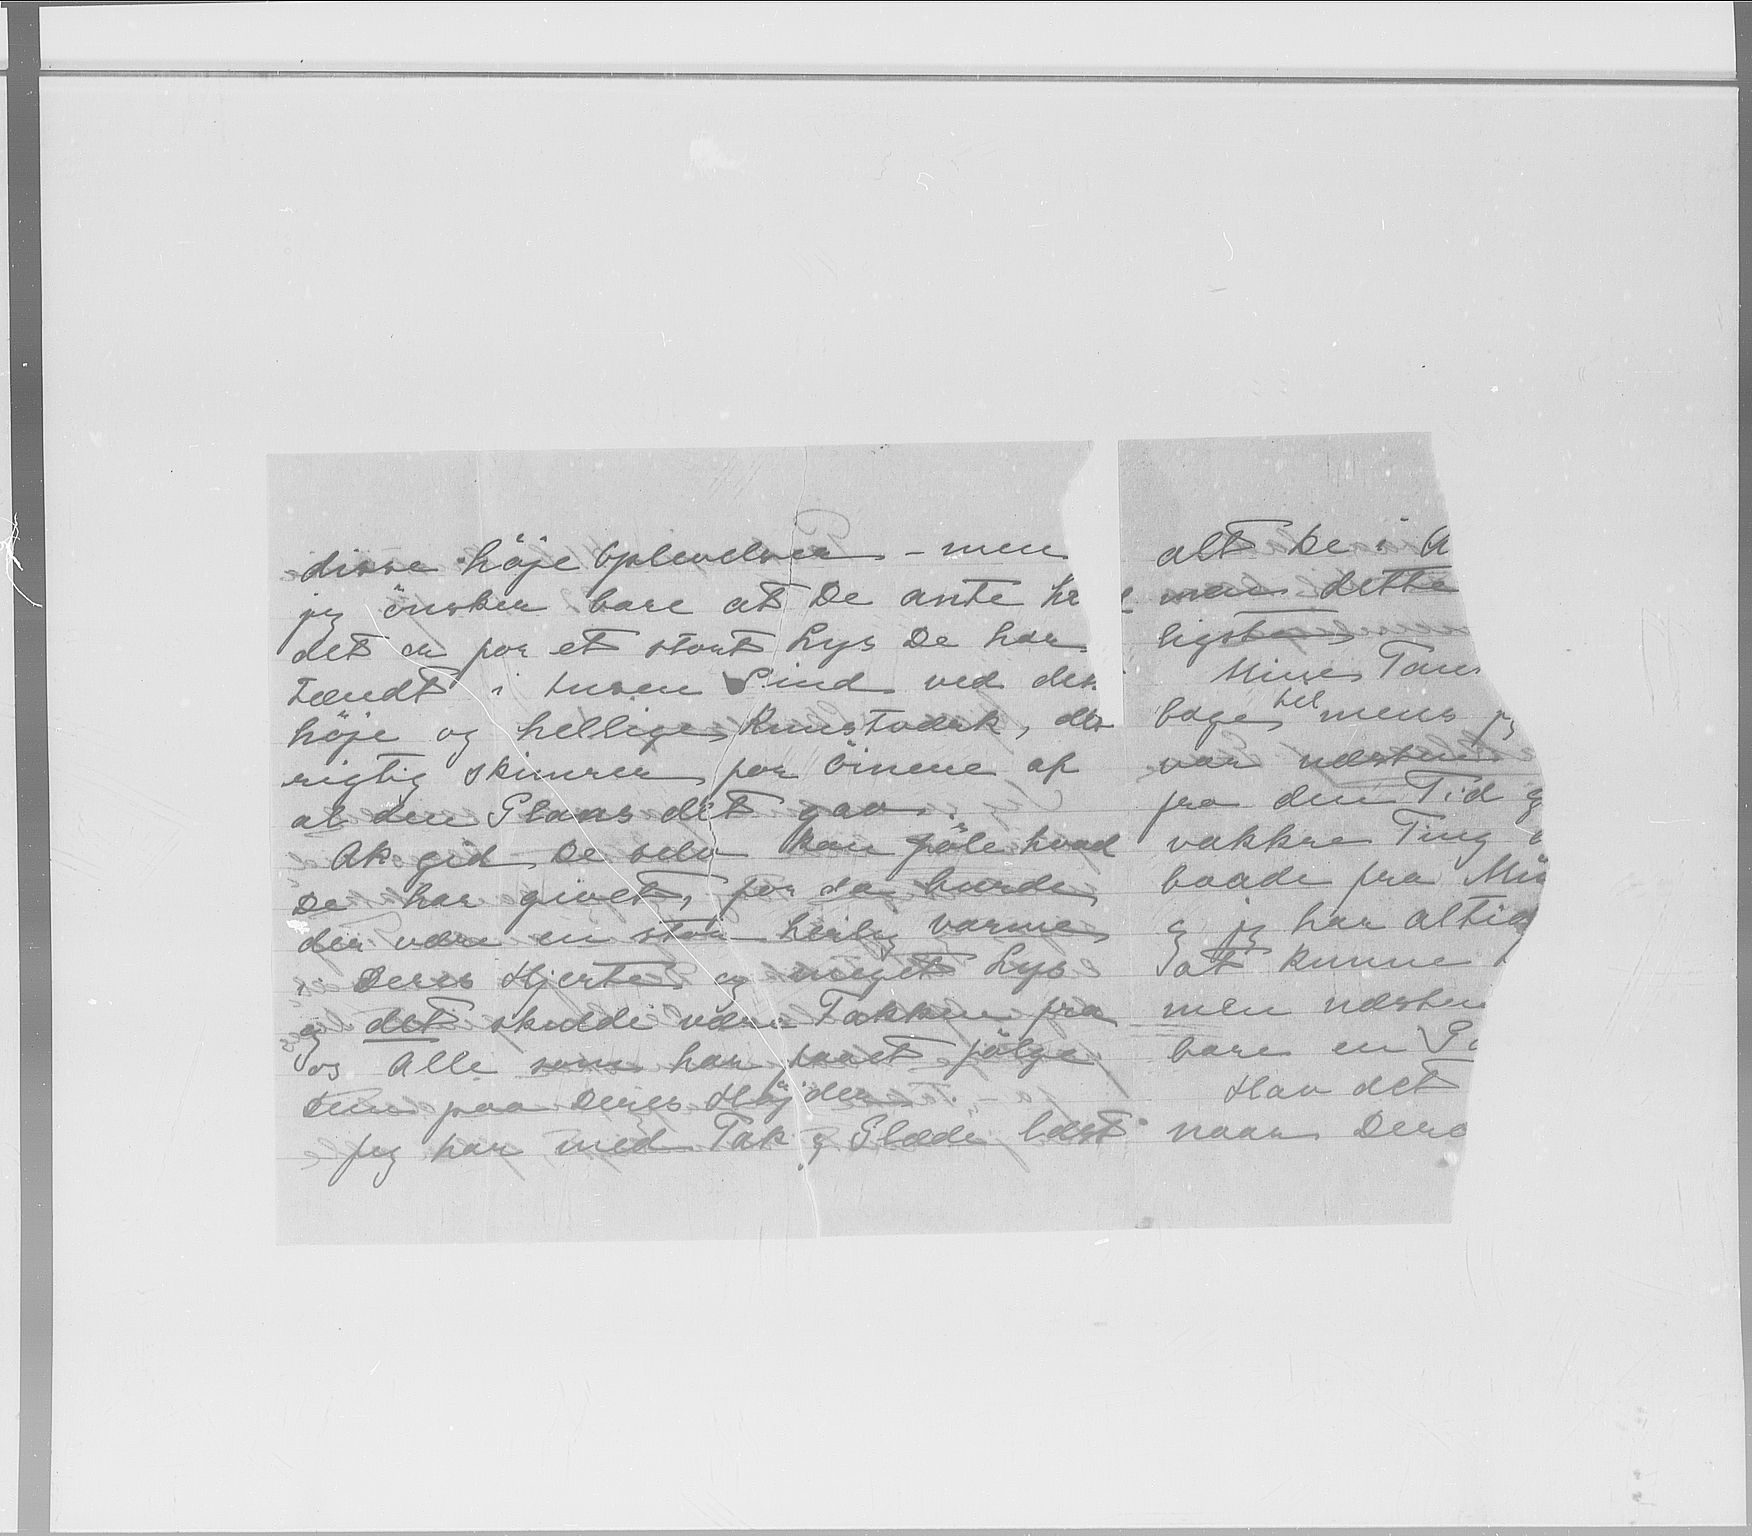 disse höje Oplevelser – men
jeg önsker bare at De ante hv
det er for et stort Lys De har
tændt i tusen Sind ved det
höje og hellige Kunstværk, der
rigtig skinner for Öinene af
al den Glans det gav.
Ak gid De selv kan föle hvad
De har givet, for da burde
der være en stor herlig varme
i Deres Hjerte og meget Lys
og det skulde være Takken fra
os Alle som har faaet fölge
Dem paa Deres Höjder.
Jeg har med Tak & Glæde læst
alt De i
men dette
ligste
Mine Tan
bage til mens jeg
var næsten
fra den Tid
vakkre Ting
baade fra Mü
og jeg har altid
at kunne
men næsten
bare en
Hav det
naar Dere